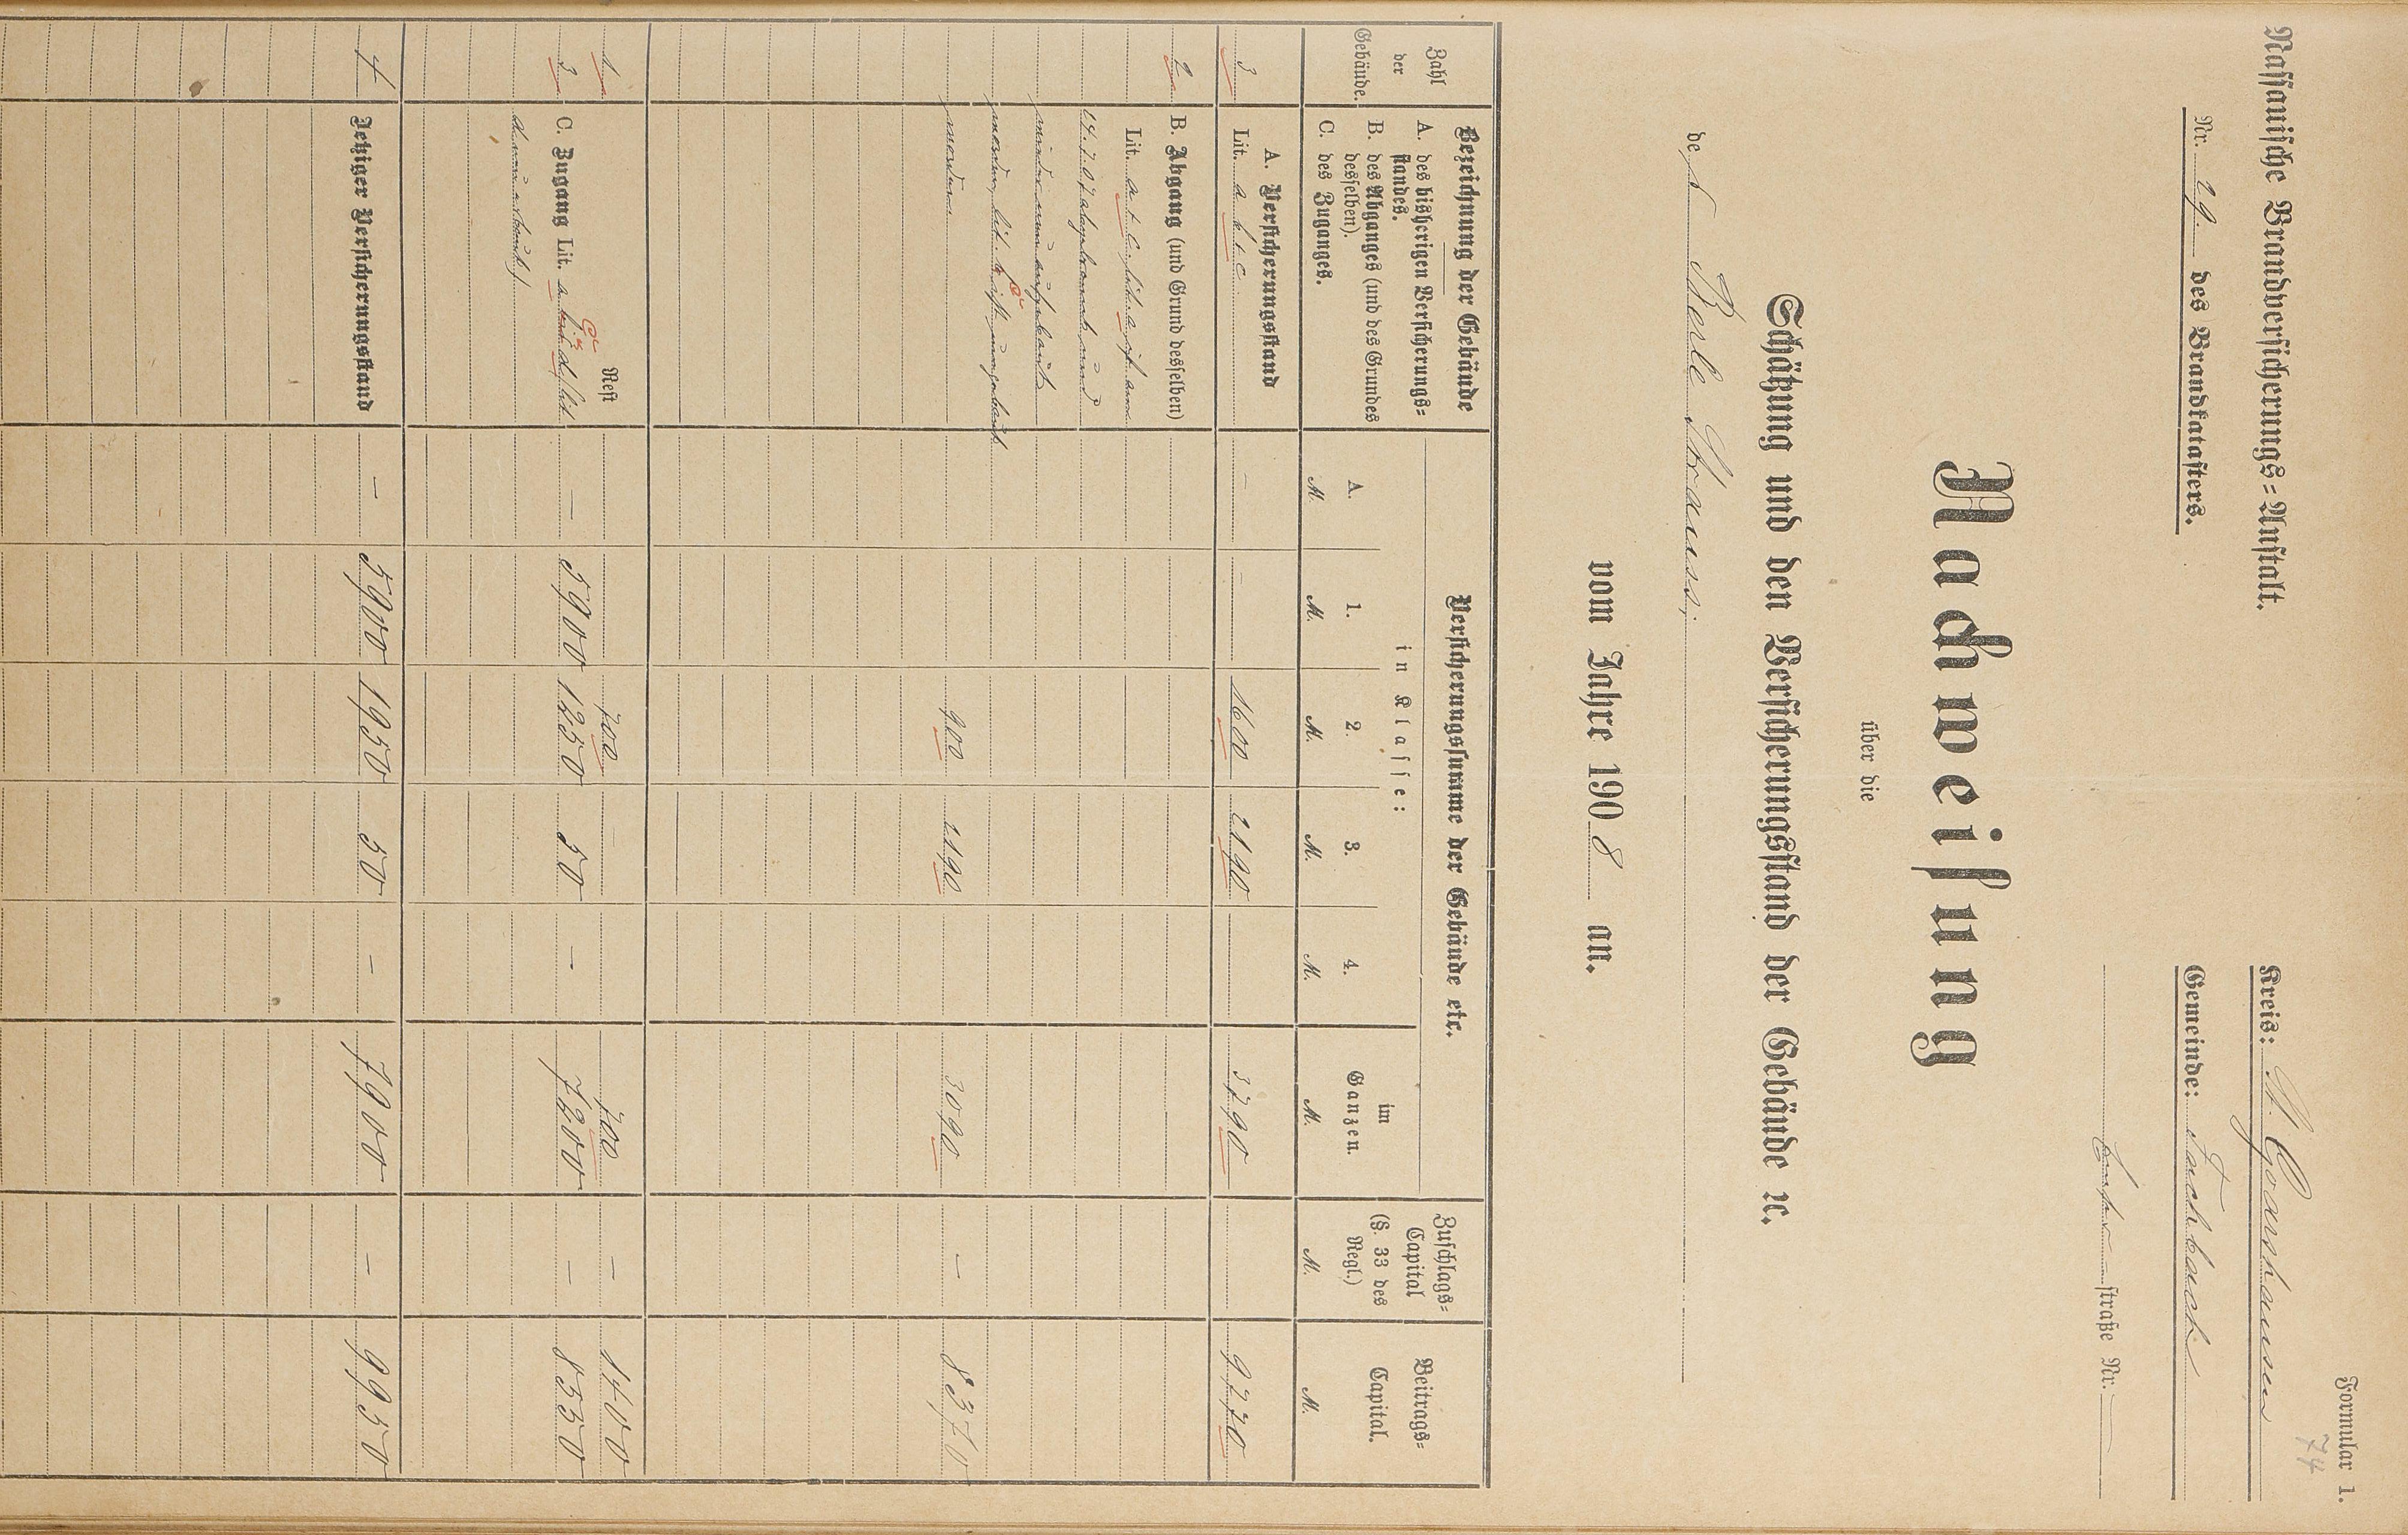 Formular 1.
74
Nassauische Brandversicherungs=Anstalt.
Kreis: St. Goarshausen
Nr. 29. des Brandkatasters.
Gemeinde: Fachbach
straße Nr.
Nachweisung
über die
Schätzung und den Versicherungsstand der Gebäude ꝛc.
des Berle Strauss,
vom Jahre 1908 an.
Zahl der Gebäude.
Bezeichnung der Gebäude
A. des bisherigen Versicherungs=
standes.
B. des Abganges (und des Grundes
desselben).
C. des Zuganges.
Versicherungssumme der Gebäude etc.
in Klasse:
A. 1. 2. 3. 4.
im Ganzen.
Zuschlags=
Capital
(§. 33 des
Regl.)
Beitrags=
Capital.
M. M. M. M. M. M. M. M.
A. Versicherungsstand
3 Lit. a b c – – 1600 2190 3790 9770
B. Abgang (und Grund desselben)
2 Lit. a + c, lit. a ist am
14.7.07 abgebrannt und
wieder neu aufgebaut
worden, lit. c ist umgebaut
worden 900 2190 3090 – 8370
1 Rest 700 – 700 – 1400
3 C. Zugang Lit. a – 5900 1250 50 – 7200 – 8550
4 Jetziger Versicherungsstand – 5900 1950 50 – 7900 – 9950